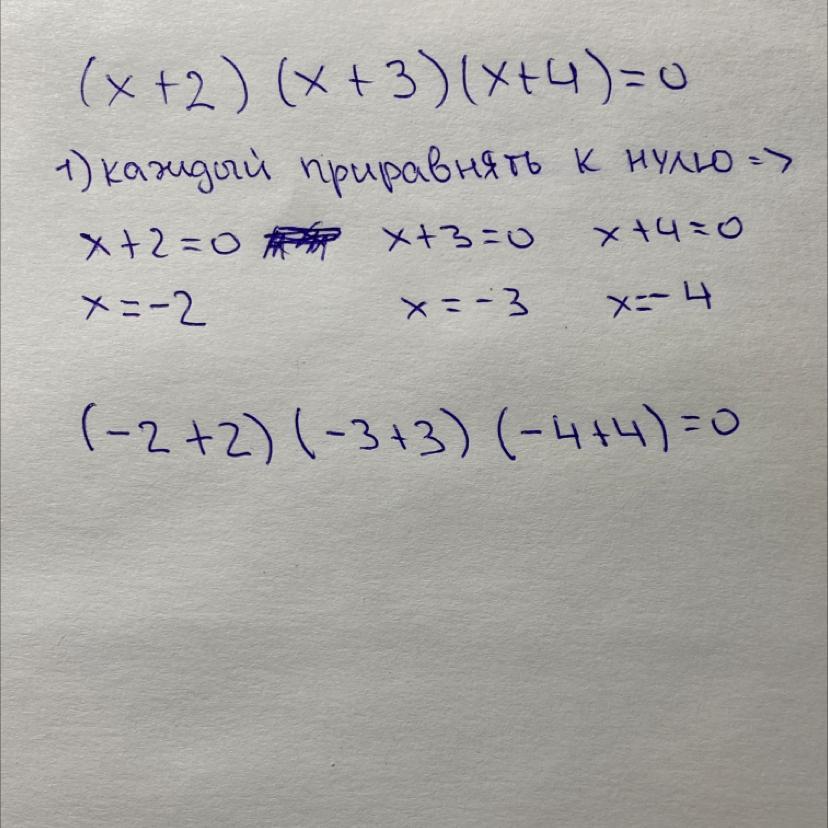 (x+2) (x+3)(x+4)=0
1) каждый приравнять к нулю =>
x+2=0 x+3=0 x+4=0
x=-2 x=-3 x=-4
(-2+2) (-3+3) (-4+4)=0